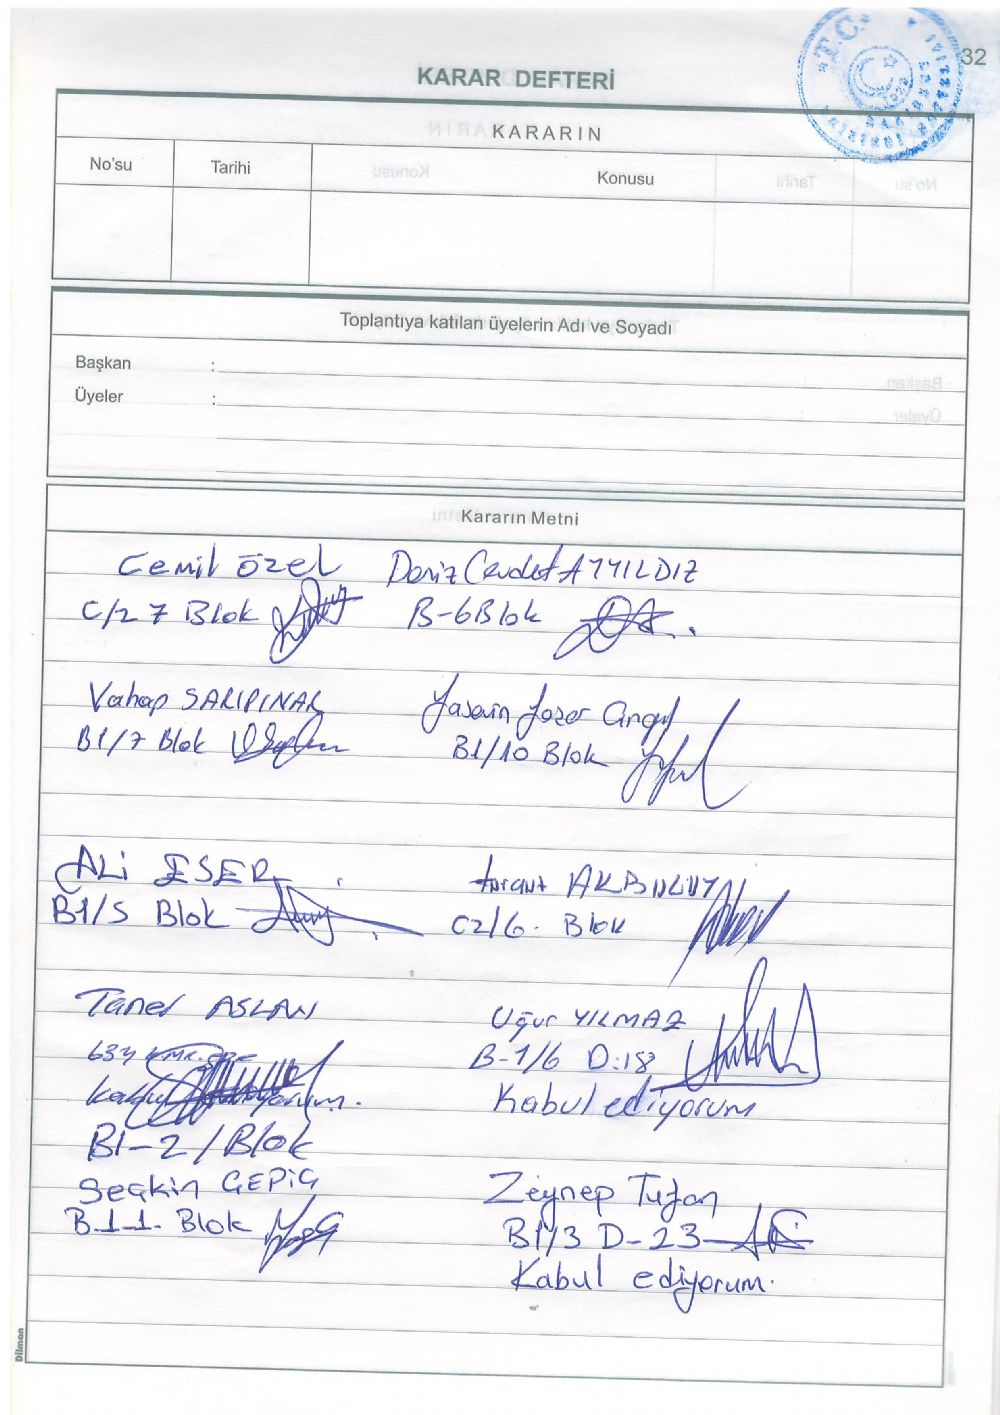 32
KARAR DEFTERİ
KARARIN
No'su
Tarihi
Konusu
Toplantıya katılan üyelerin Adı ve Soyadı
Başkan :
Üyeler :
Kararın Metni
Cemil Özel
C/2 7 Blok
Deniz Cevdet AYYILDIZ
B-6 Blok
Vahap SARIPINAR
B1/7 Blok
Yasemin
B1/10 Blok
ALİ ESER
B1/5 Blok
AKBULUT
C2/6. Blok
Taner ASLAN
B1-2/Blok
Uğur YILMAZ
B-1/6 D:18
Kabul ediyorum
Seçkin GEPİG
B-1-1- Blok
Zeynep Tufan
B1/3 D-23
Kabul ediyorum.
Dilman